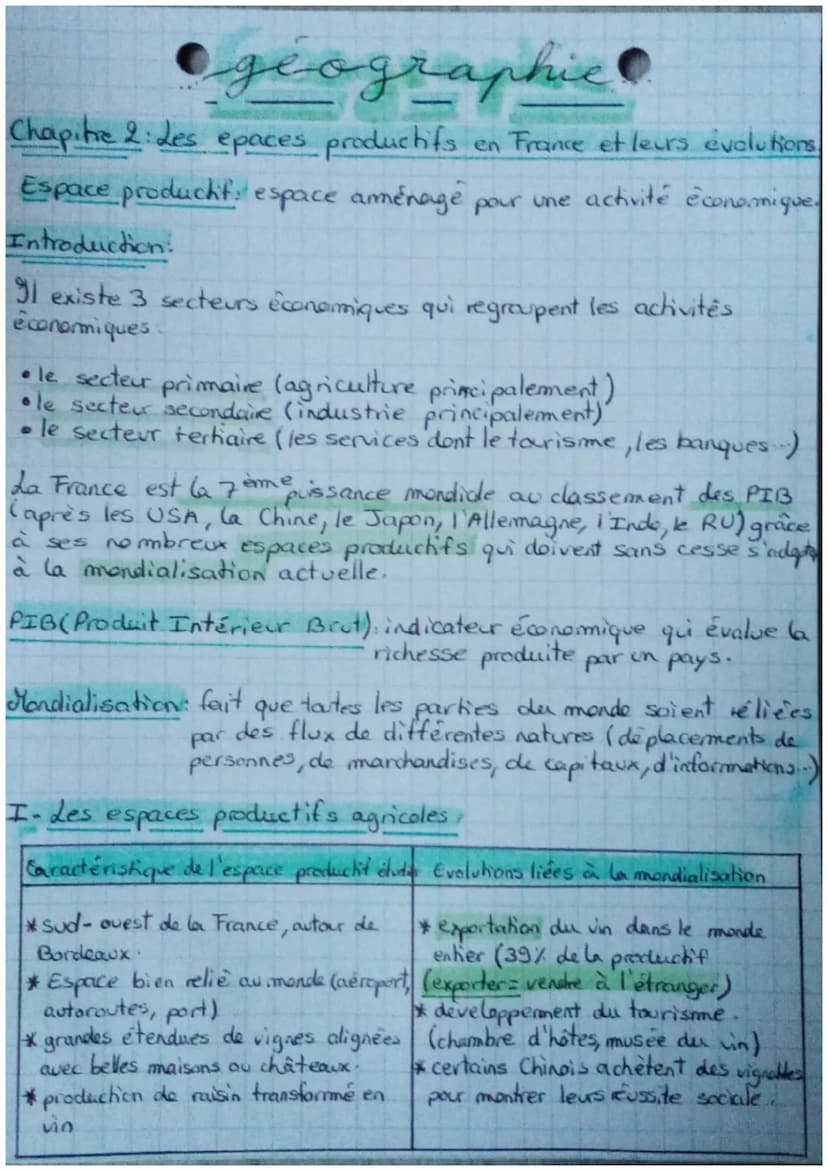 géographie
Chapitre 2: Les epaces productifs en France et leurs évolutions.
Espace productif: espace aménagé pour une activité économique.
Introduction:
Il existe 3 secteurs économiques qui regroupent les activités
économiques.
• le secteur primaire (agriculture principalement)
• le secteur secondaire (industrie principalement)
• le secteur tertiaire (les services dont le tourisme, les banques...)
La France est la 7ème puissance mondiale au classement des PIB
(après les USA, la Chine, le Japon, l'Allemagne, l'Inde, le RU) grâce
à ses nombreux espaces productifs qui doivent sans cesse s'adapter
à la mondialisation actuelle.
PIB (Produit Intérieur Brut): indicateur économique qui évalue la
richesse produite par un pays.
Mondialisation: fait que toutes les parties du monde soient réliées
par des flux de différentes natures (déplacements de
personnes, de marchandises, de capitaux, d'informations...)
I- Les espaces productifs agricoles:
Caractéristique de l'espace productif étudié
Evolutions liées à la mondialisation
* sud-ouest de la France, autour de
Bordeaux.
* Espace bien relié au monde (aéroport,
autoroutes, port)
* grandes étendues de vignes alignées
avec belles maisons ou châteaux.
* production de raisin transformé en
vin
* exportation du vin dans le monde
entier (39% de la productif
(exporter = vendre à l'étranger)
* développement du tourisme.
(chambre d'hôtes, musée du vin)
* certains Chinois achètent des vignobles
pour montrer leurs réussite sociale.